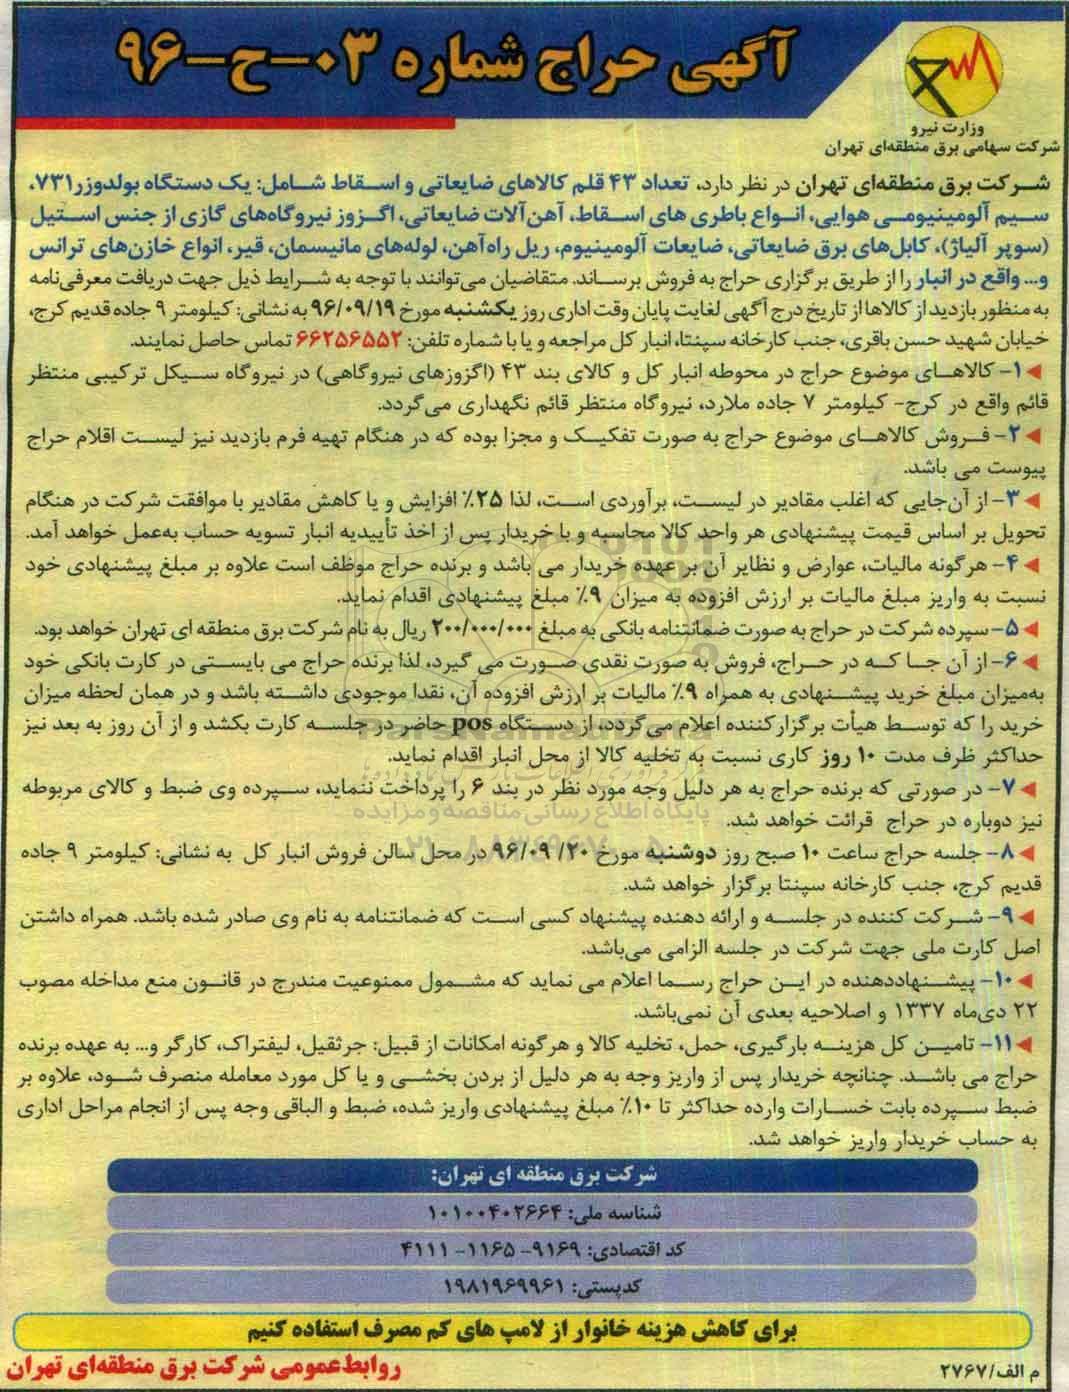 آگهی حراج شماره ۰۳-ح-۹۶
وزارت نیرو
شرکت سهامی برق منطقه‌ای تهران
شرکت برق منطقه‌ای تهران در نظر دارد، تعداد ۴۳ قلم کالاهای ضایعاتی و اسقاط شامل: یک دستگاه بولدوزر۷۳۱،
سیم آلومینیومی هوایی، انواع باطری های اسقاط، آهن‌آلات ضایعاتی، اگزوز نیروگاه‌های گازی از جنس استیل
(سوپر آلیاژ)، کابل‌های برق ضایعاتی، ضایعات آلومینیوم، ریل راه‌آهن، لوله‌های مانیسمان، قیر، انواع خازن‌های ترانس
و... واقع در انبار را از طریق برگزاری حراج به فروش برساند. متقاضیان می‌توانند با توجه به شرایط ذیل جهت دریافت معرفی‌نامه
به منظور بازدید از کالاها از تاریخ درج آگهی لغایت پایان وقت اداری روز یکشنبه مورخ ۹۶/۰۹/۱۹ به نشانی: کیلومتر ۹ جاده قدیم کرج،
خیابان شهید حسن باقری، جنب کارخانه سپنتا، انبار کل مراجعه و یا با شماره تلفن: ۶۶۲۵۶۵۵۲ تماس حاصل نمایند.
۱- کالاهای موضوع حراج در محوطه انبار کل و کالای بند ۴۳ (اگزوزهای نیروگاهی) در نیروگاه سیکل ترکیبی منتظر
قائم واقع در کرج- کیلومتر ۷ جاده ملارد، نیروگاه منتظر قائم نگهداری می‌گردد.
۲- فروش کالاهای موضوع حراج به صورت تفکیک و مجزا بوده که در هنگام تهیه فرم بازدید نیز لیست اقلام حراج
پیوست می باشد.
۳- از آن‌جایی که اغلب مقادیر در لیست، برآوردی است، لذا ۲۵٪ افزایش و یا کاهش مقادیر با موافقت شرکت در هنگام
تحویل بر اساس قیمت پیشنهادی هر واحد کالا محاسبه و با خریدار پس از اخذ تأییدیه انبار تسویه حساب به‌عمل خواهد آمد.
۴- هرگونه مالیات، عوارض و نظایر آن بر عهده خریدار می باشد و برنده حراج موظف است علاوه بر مبلغ پیشنهادی خود
نسبت به واریز مبلغ مالیات بر ارزش افزوده به میزان ۹٪ مبلغ پیشنهادی اقدام نماید.
۵- سپرده شرکت در حراج به صورت ضمانتنامه بانکی به مبلغ ۲۰۰/۰۰۰/۰۰۰ ریال به نام شرکت برق منطقه ای تهران خواهد بود.
۶- از آن جا که در حراج، فروش به صورت نقدی صورت می گیرد، لذا برنده حراج می بایستی در کارت بانکی خود
به‌میزان مبلغ خرید پیشنهادی به همراه ۹٪ مالیات بر ارزش افزوده آن، نقدا موجودی داشته باشد و در همان لحظه میزان
خرید را که توسط هیأت برگزارکننده اعلام می‌گردد، از دستگاه pos حاضر در جلسه کارت بکشد و از آن روز به بعد نیز
حداکثر ظرف مدت ۱۰ روز کاری نسبت به تخلیه کالا از محل انبار اقدام نماید.
۷- در صورتی که برنده حراج به هر دلیل وجه مورد نظر در بند ۶ را پرداخت ننماید، سپرده وی ضبط و کالای مربوطه
نیز دوباره در حراج قرائت خواهد شد.
۸- جلسه حراج ساعت ۱۰ صبح روز دوشنبه مورخ ۹۶/۰۹/۲۰ در محل سالن فروش انبار کل به نشانی: کیلومتر ۹ جاده
قدیم کرج، جنب کارخانه سپنتا برگزار خواهد شد.
۹- شرکت کننده در جلسه و ارائه دهنده پیشنهاد کسی است که ضمانتنامه به نام وی صادر شده باشد. همراه داشتن
اصل کارت ملی جهت شرکت در جلسه الزامی می‌باشد.
۱۰- پیشنهاددهنده در این حراج رسما اعلام می نماید که مشمول ممنوعیت مندرج در قانون منع مداخله مصوب
۲۲ دی‌ماه ۱۳۳۷ و اصلاحیه بعدی آن نمی‌باشد.
۱۱- تامین کل هزینه بارگیری، حمل، تخلیه کالا و هرگونه امکانات از قبیل: جرثقیل، لیفتراک، کارگر و... به عهده برنده
حراج می باشد. چنانچه خریدار پس از واریز وجه به هر دلیل از بردن بخشی و یا کل مورد معامله منصرف شود، علاوه بر
ضبط سپرده بابت خسارات وارده حداکثر تا ۱۰٪ مبلغ پیشنهادی واریز شده، ضبط و الباقی وجه پس از انجام مراحل اداری
به حساب خریدار واریز خواهد شد.
شرکت برق منطقه ای تهران:
شناسه ملی: ۱۰۱۰۰۴۰۲۶۶۴
کد اقتصادی: ۹۱۶۹- ۱۱۶۵- ۴۱۱۱
کدپستی: ۱۹۸۱۹۶۹۹۶۱
برای کاهش هزینه خانوار از لامپ های کم مصرف استفاده کنیم
م الف/۲۷۶۷
روابط عمومی شرکت برق منطقه‌ای تهران
پایگاه اطلاع رسانی مناقصه و مزایده